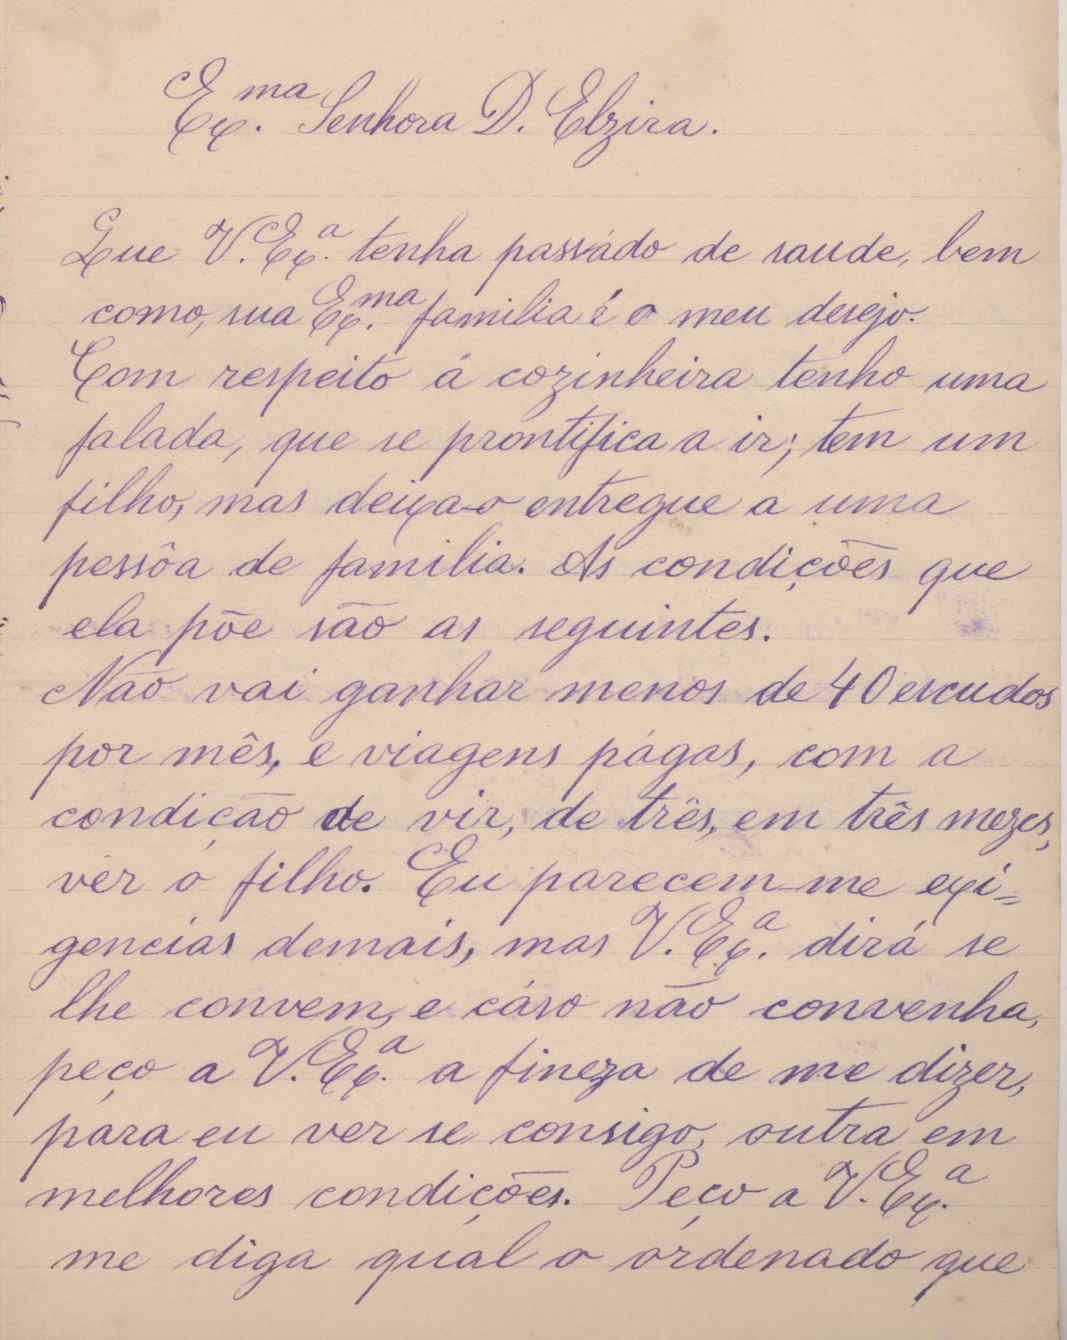 Ex.ma Senhora D. Elzira.
Que V. Ex.a tenha passádo de saude, bem
como, sua Ex.ma familia é o meu desejo.
Com respeito á cozinheira tenho uma
falada, que se prontifica a ir; tem um
filho, mas deixa-o entregue a uma
pessôa de familia. As condições que
ela põe são as seguintes.
Não vai ganhar menos de 40 escudos
por mês, e viagens págas, com a
condição de vir, de três, em três mezes,
vêr o filho. Eu parecem-me exi=
gencias demais, mas V. Ex.a dirá se
lhe convem, e cáso não convenha,
peço a V. Ex.a a fineza de me dizer,
pára eu ver se consigo, outra em
melhores condições. Peço a V. Ex.a
me diga quál o órdenado que